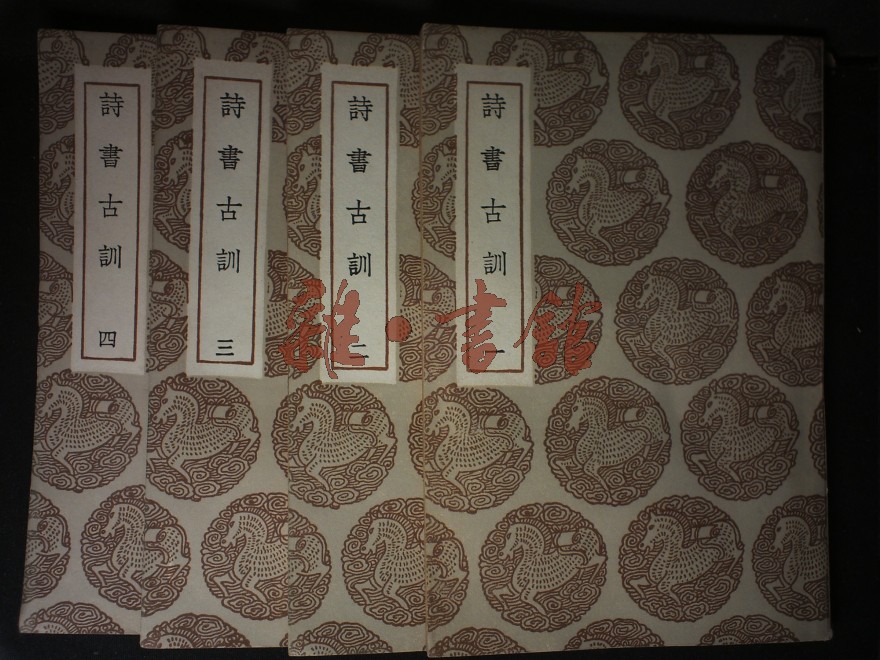 詩書古訓 一
詩書古訓 二
詩書古訓 三
詩書古訓 四
雜·書館